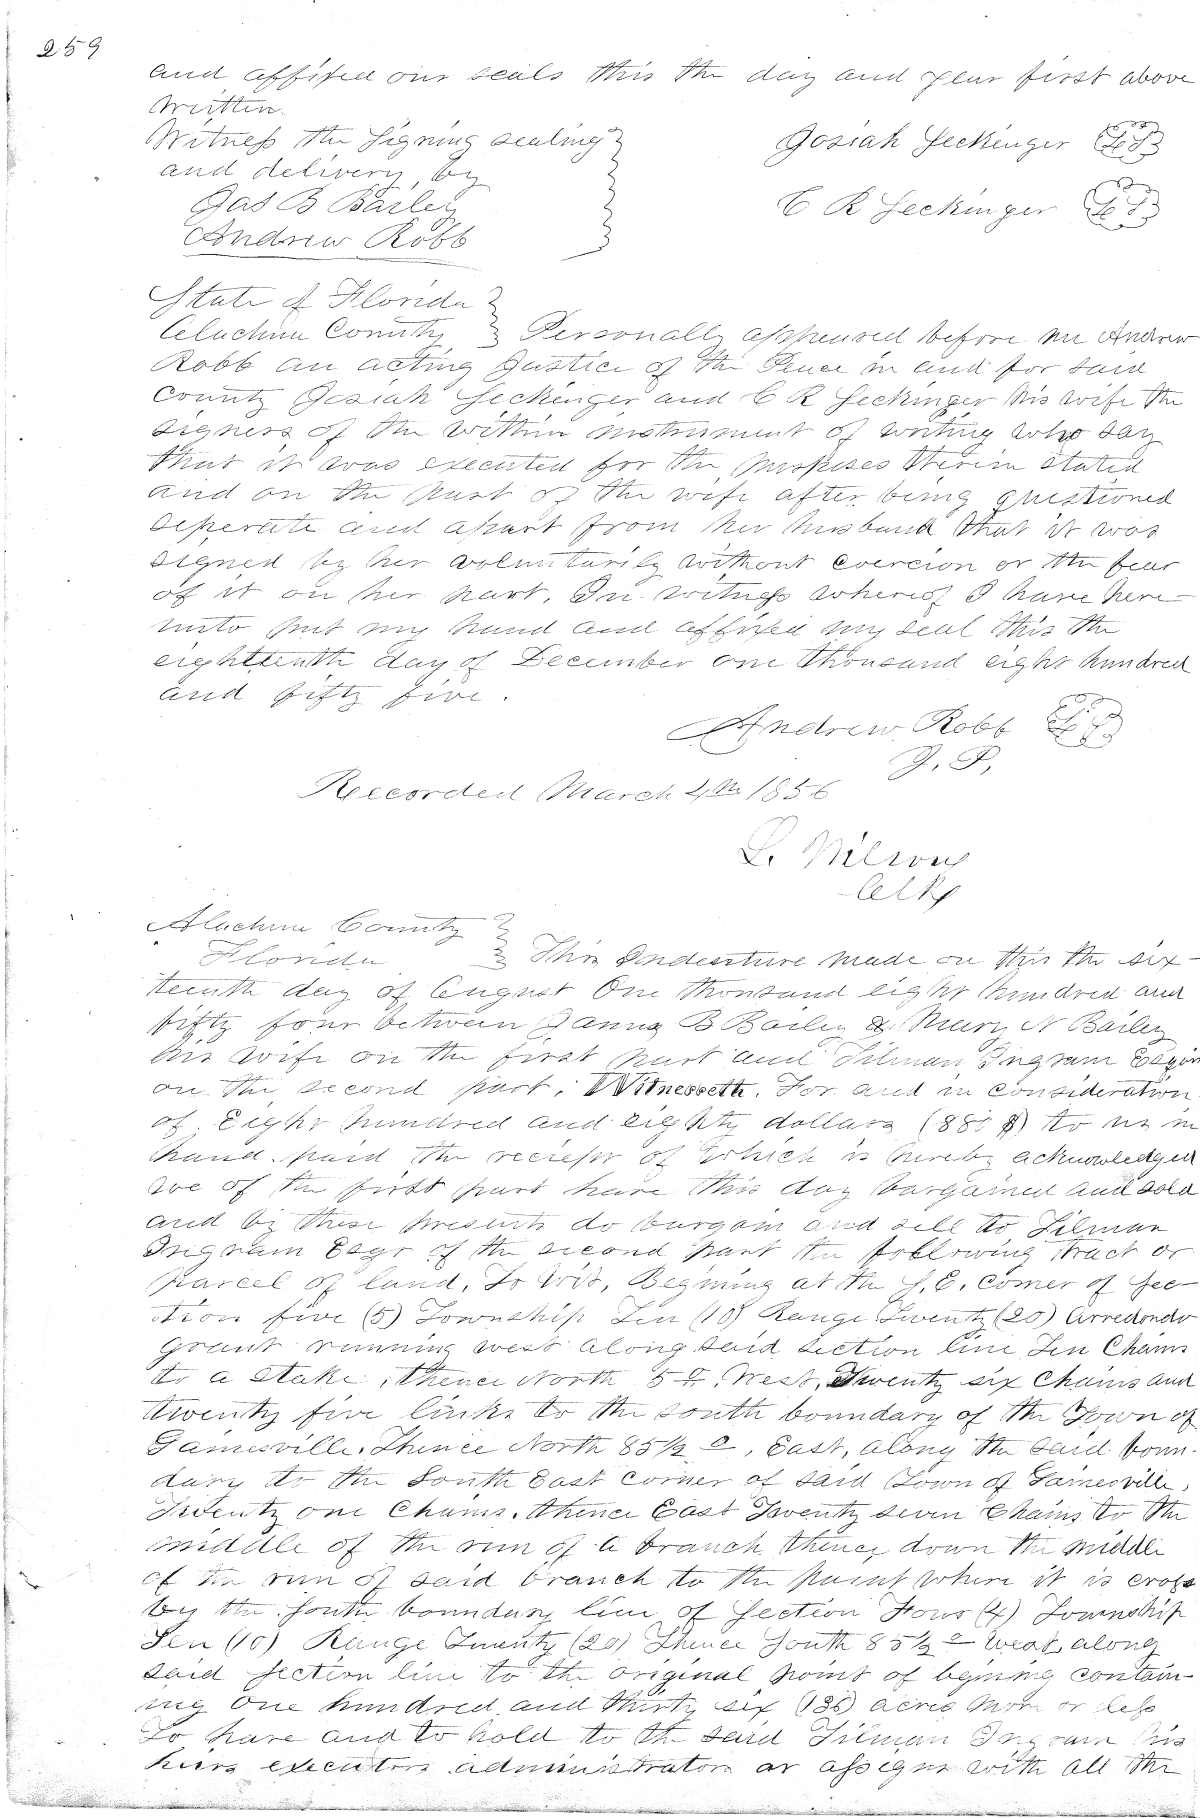 259
and affixed our seals this the day and year first above
written.
Witness the signing sealing
and delivery, by
Jas B Bailey
Andrew Robb
Josiah Seckinger LS
C R Seckinger LS
State of Florida
Alachua County Personally appeared before me Andrew
Robb an acting Justice of the Peace in and for said
County Josiah Seckinger and C R Seckinger his wife the
signers of the within instrument of writing who say
that it was executed for the purposes therein stated
and on the part of the wife after being questioned
seperate and apart from her husband that it was
signed by her voluntarily without coercion or the fear
of it on her part. In witness whereof I have here-
unto put my hand and affixed my seal this the
eighteenth day of December one thousand eight hundred
and fifty five.
Andrew Robb LS
J. P.
Recorded March 4th 1856
L. Wilson
Clk
Alachua County
Florida This Indenture made on this the six-
teenth day of August One thousand eight hundred and
fifty four between James B Bailey & Mary N Bailey
his wife on the first part and Tilman Ingram Esqr
on the second part. Witnesseth. For and in consideration
of Eight hundred and eighty dollars (880 $) to us in
hand paid the reciept of which is hereby acknowledged
we of the first part have this day bargained and sold
and by these presents do bargain and sell to Tilman
Ingram Esqr of the second part the following tract or
parcel of land, To Wit, Begining at the S. E. corner of Sec-
tion five (5) Township Ten (10) Range Twenty (20) Arredondo
grant running west along said section line Ten Chains
to a stake, thence North 5° West, Twenty six Chains and
twenty five links to the south boundary of the Town of
Gainesville. Thence North 85½°, East, along the said boun-
dary to the South East corner of said Town of Gainesville,
Twenty one Chains. thence East Twenty seven Chains to the
middle of the run of a branch thence down the middle
of the run of said branch to the point where it is cross
by the South boundary line of Section Four (4) Township
Ten (10) Range Twenty (20) Thence South 85½° West, along
said section line to the original point of begining contain-
ing one hundred and thirty six (136) acres more or less
To have and to hold to the said Tilman Ingram his
heirs executors administrators or assigns with all the